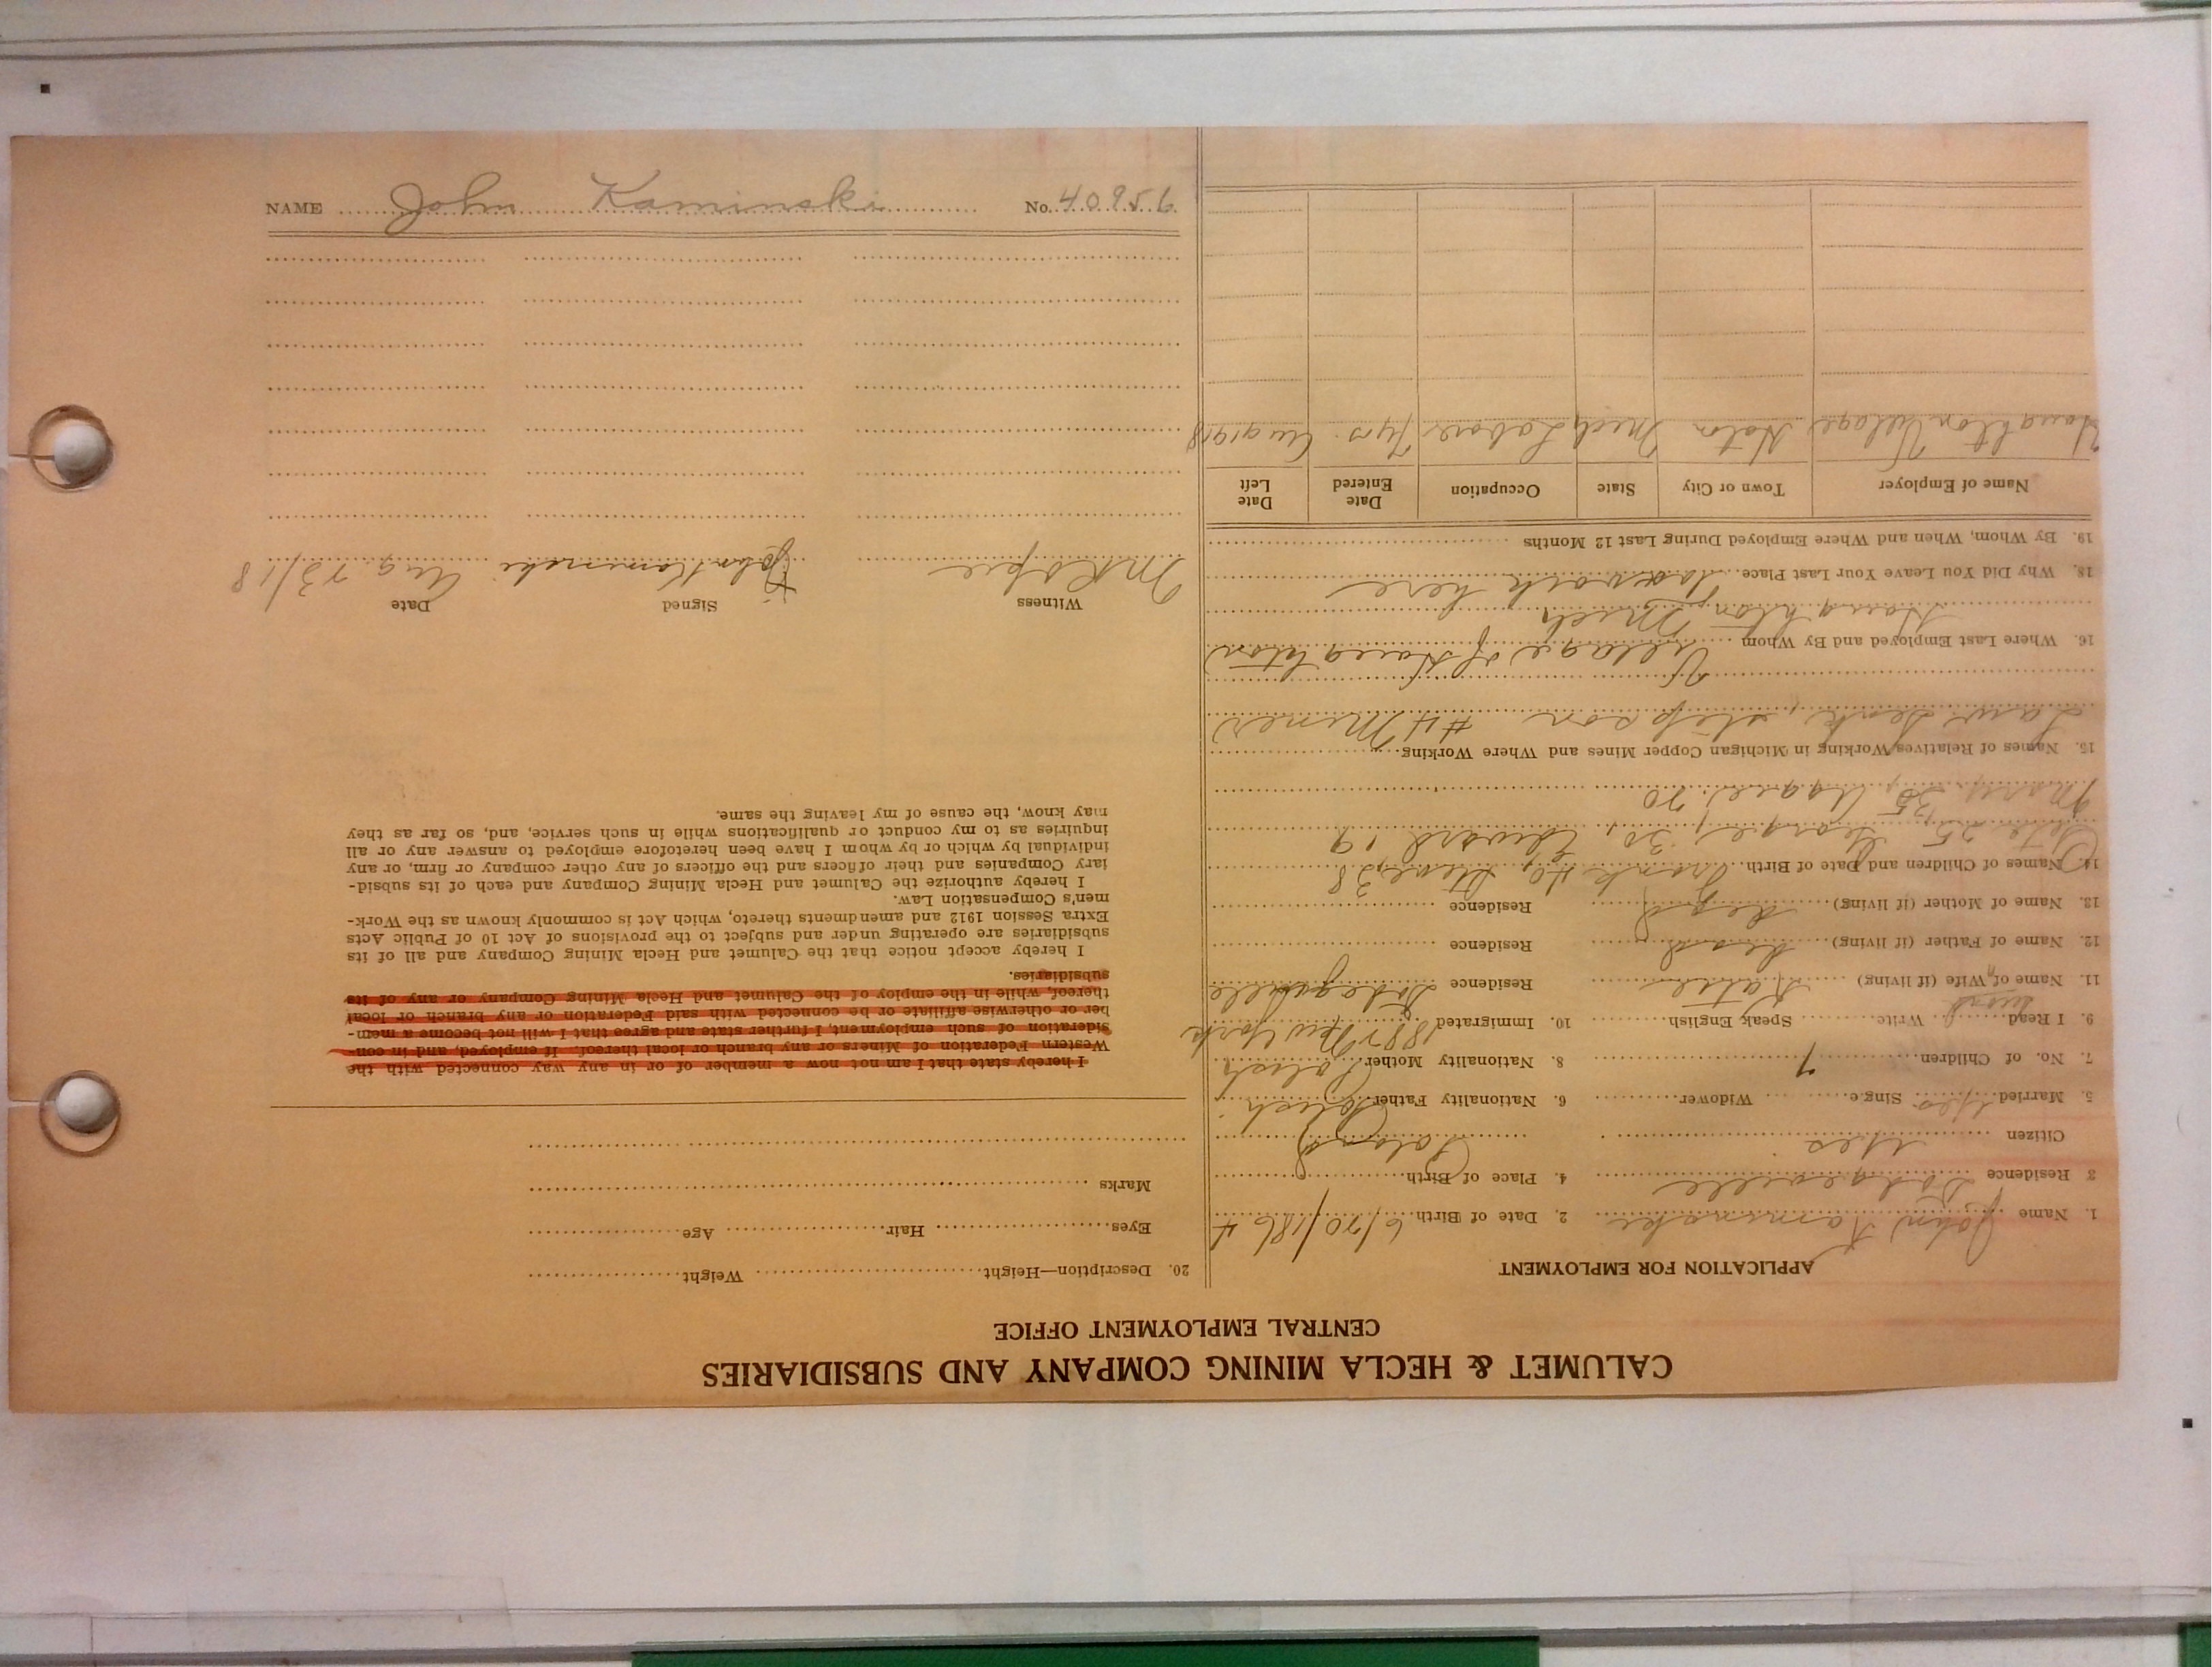 CALUMET & HECLA MINING COMPANY AND SUBSIDIARIES
CENTRAL EMPLOYMENT OFFICE
APPLICATION FOR EMPLOYMENT
1. Name John Kaminski 2. Date of Birth 6/20/1864
3 Residence Dodgeville 4. Place of Birth Poland
Citizen Yes
5. Married Yes Sing.e Widower 6. Nationality Father Polish
7. No. of Children 7 8. Nationality Mother Polish
9. I Read Write Speak English 10. Immigrated 1882 New York
11. Name of Wife (if living) Katie Residence Dodgeville
12. Name of Father (if living) dead Residence
13. Name of Mother (if living) dead Residence
14. Names of Children and Date of Birth Frank 40, 38
Pete 25 George 30, Edward 19
Mary 35, 20
15. Names of Relatives Working in Michigan Copper Mines and Where Working
step son #4 Miner
16. Where Last Employed and By Whom Village of Houghton
Houghton Mich
18. Why Did You Leave Your Last Place To work here
19. By Whom, When and Where Employed During Last 12 Months
Name of Employer Town or City State Occupation Date Entered Date Left
Houghton Village Hoton Mich Labore 7 yrs. Aug 1918
20. Description—Height Weight
Eyes Hair Age
Marks
I hereby state that I am not now a member of or in any way connected with the
Western Federation of Miners or any branch or local thereof. If employed, and in con-
sideration of such employment, I further state and agree that I will not become a mem-
ber or otherwise affiliate or be connected with said Federation or any branch or local
thereof, while in the employ of the Calumet and Hecla Mining Company or any of its
subsidiaries.
I hereby accept notice that the Calumet and Hecla Mining Company and all of its
subsidiaries are operating under and subject to the provisions of Act 10 of Public Acts
Extra Session 1912 and amendments thereto, which Act is commonly known as the Work-
men's Compensation Law.
I hereby authorize the Calumet and Hecla Mining Company and each of its subsid-
iary Companies and their officers and the officers of any other company or firm, or any
individual by which or by whom I have been heretofore employed to answer any or all
inquiries as to my conduct or qualifications while in such service, and, so far as they
may know, the cause of my leaving the same.
Witness Signed Date
John Kaminski Aug. 23/18
NAME John Kaminski No. 40956